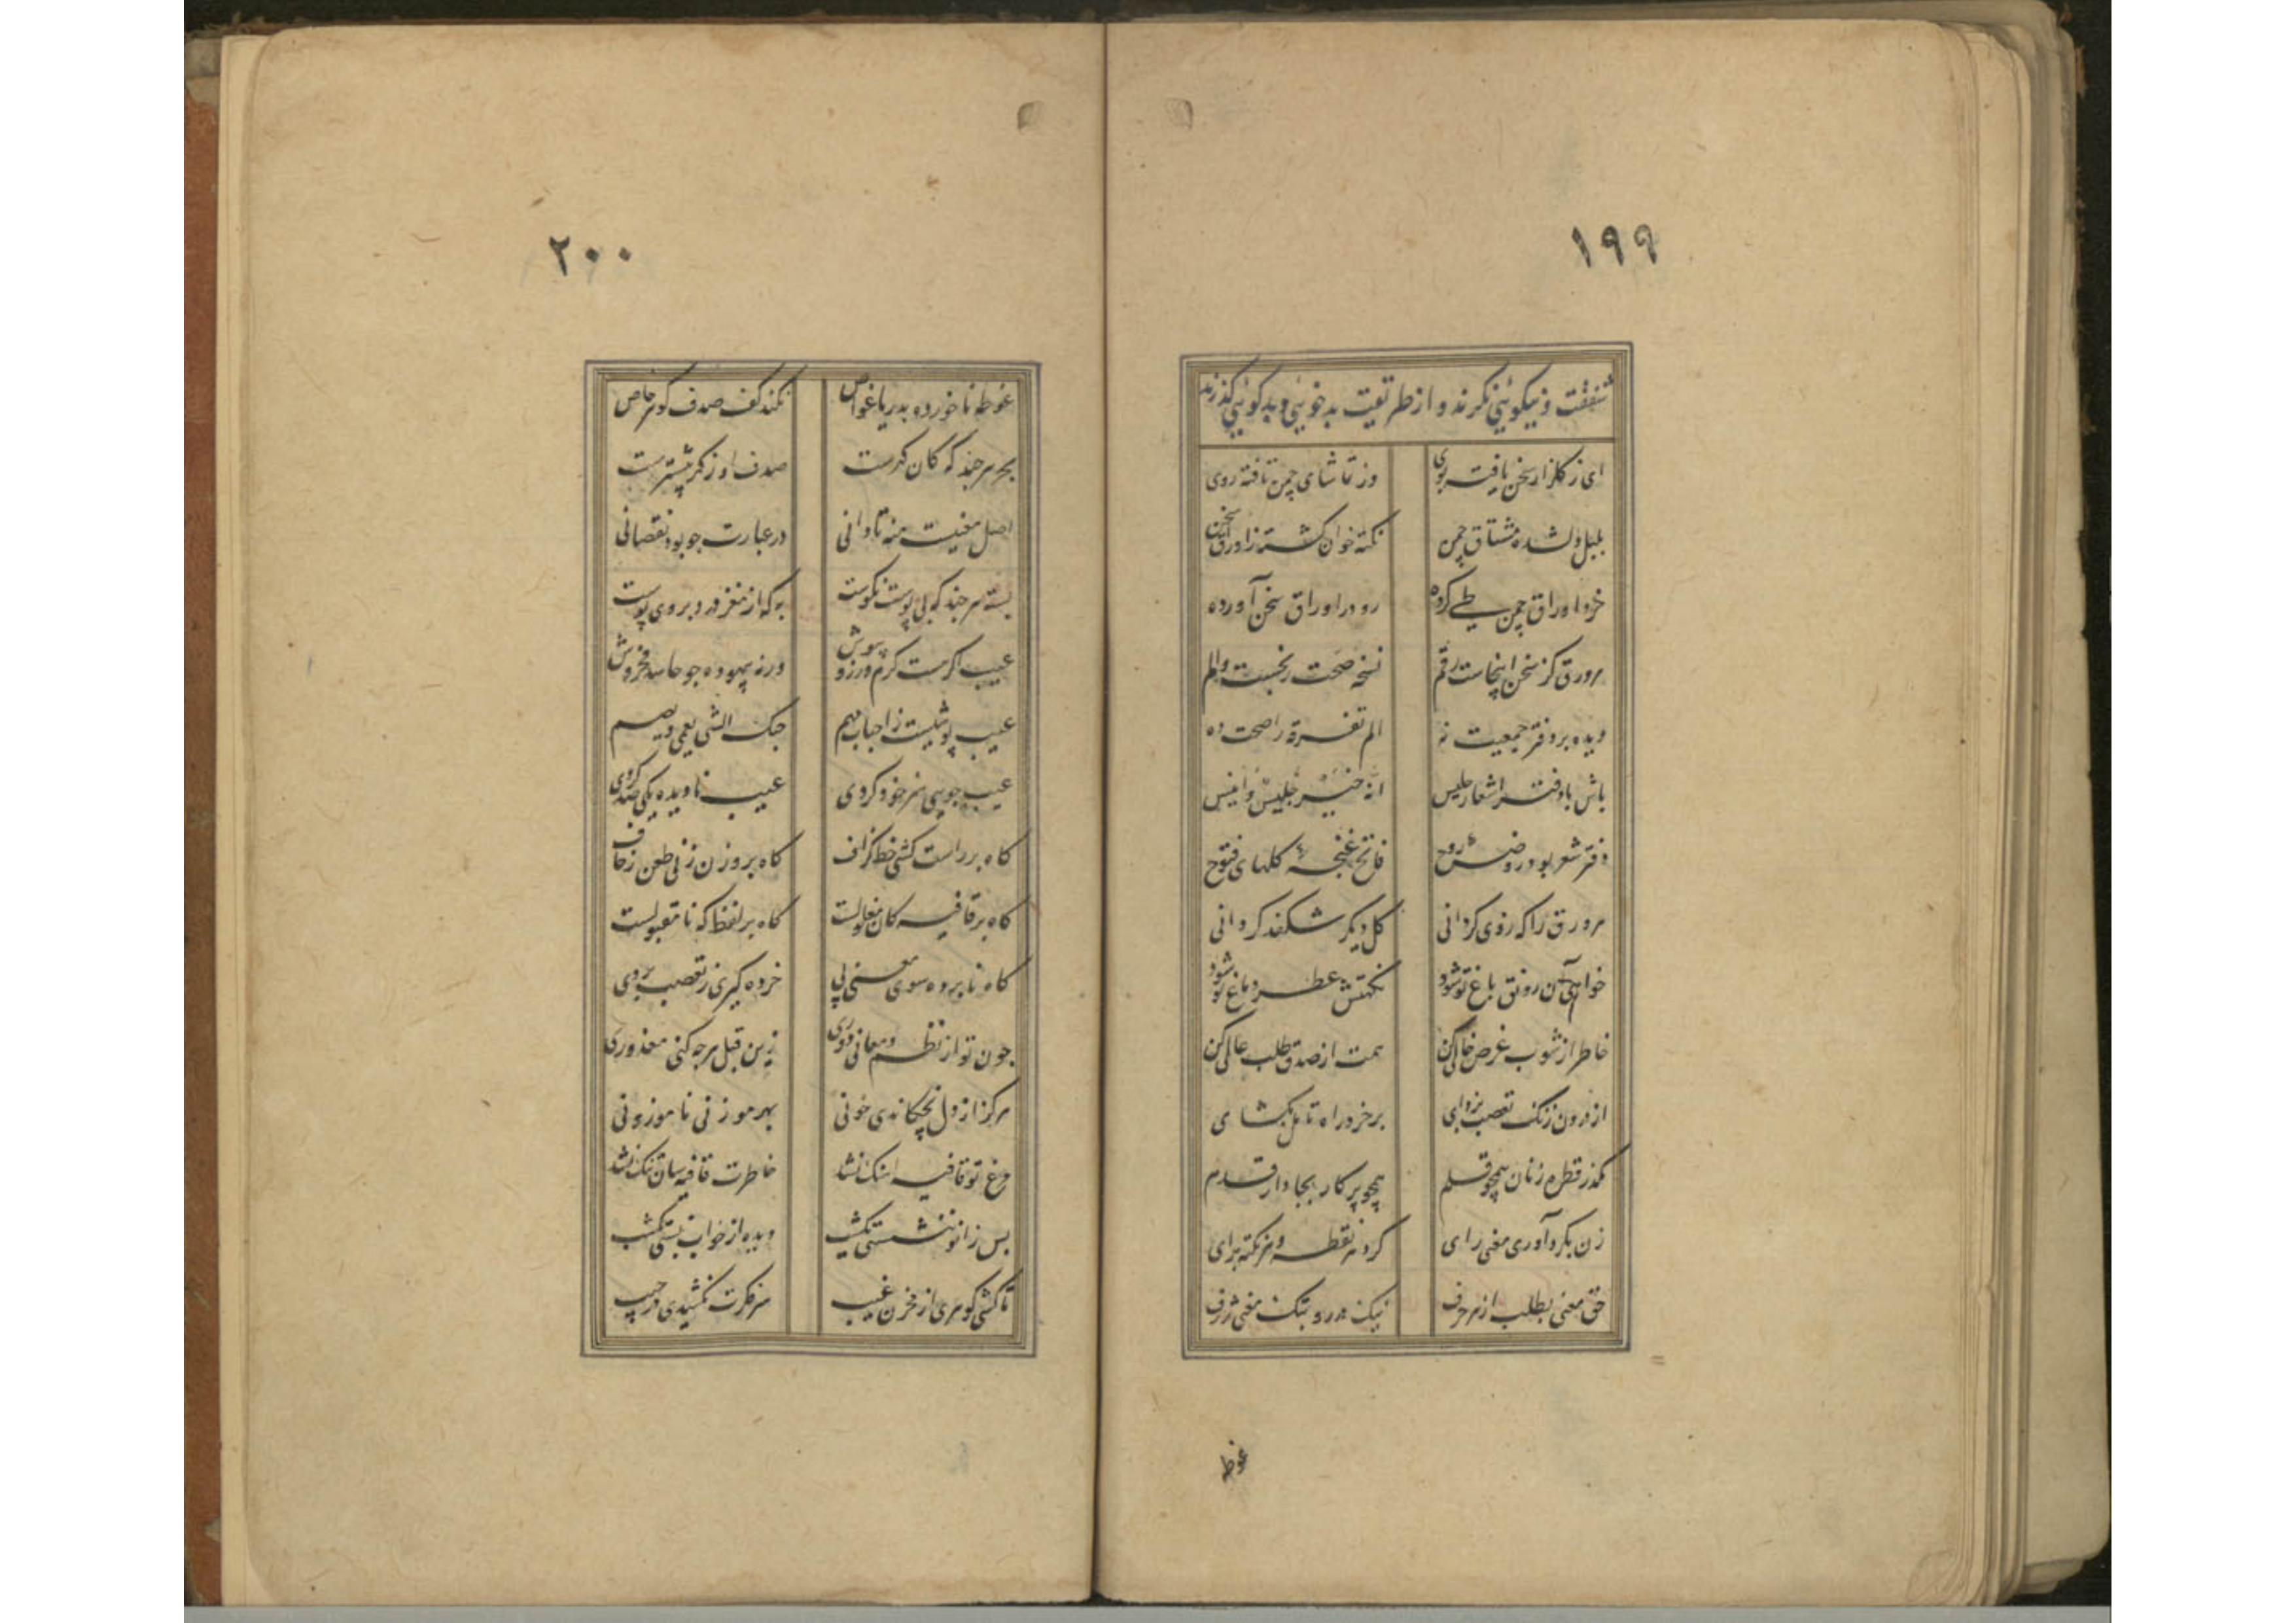 ۱۹۹
شفقت و نیکوئی نکرند و از طریقت بدخوئی و بدکوئی کذرند
ای ز کلزار سخن یافته بوی وز تماشای چمن تافته روی
بلبل دلشده مشتاق چمن نکته خوان کشته ز اوراق سخن
خرد اوراق چمن طی کرده رو در اوراق سخن آورده
هر ورق کز سخن اینجاست رقم نسخه صحت رنجست و الم
دیده بر دفتر جمعیت نه الم تفرقه را صحت ده
باش با دفتر اشعار جلیس انه خیر جلیس و انیس
دفتر شعر بود روضه روح فاتح غنچه کلهای فتوح
هر ورق را که ز وی کردانی کل دیکر شکفد کردانی
خواهی آن رونق باغ تو شود نکهتش عطر دماغ تو شود
خاطر از شوب غرض خالی کن همت از صدق طلب عالی کن
از درون زنک تعصب بزدای بر خرد راه تامل بکشای
مکذر قطره زنان همچو قلم همچو پرکار بجا دار قدم
زن بکرد آوری معنی رای کرد هر نقطه و هر نکته برای
حق معنی بطلب از هر حرف نیک در رو بتک معنی ژرف
غوطه
۲۰۰
غوطه ناخورده بدریا غواص نکند کف صدف کوهر خاص
بحر هر چند که کان کهرست صدف او ز کهر بیشترست
اصل معنیست منه تاوانی در عبارت چو بود نقصانی
پسته هر چند که بی پوست نکوست به که از مغز در و بر وی پوست
عیب اکر هست کرم ورز و بپوش ورنه بیهوده چو حاسد مخروش
عیب پوشیست ز احباب مهم حبک الشی یعمی و یصم
عیب جویی هنر خود کردی عیب نادیده یکی صد کردی
کاه بر راست کشی خط کزاف کاه بر وزن زنی طعن زحاف
کاه بر قافیه کان معلولست کاه بر لفظ که نامقبولست
کاه نابرده سوی معنی پی خرده کیری ز تعصب بر وی
چون تو از نظم و معانی دوری زین قبل هر چه کنی معذوری
هرکز از دل نچکاندی خونی بهر موزونی ناموزونی
مرغ تو قافیه آهنک نشد خاطرت قافیه سان تنک نشد
پس زانو ننشستی یکشب دیده از خواب نبستی یکشب
تا کشی کوهری از مخزن غیب سر فکرت نکشیدی در جیب